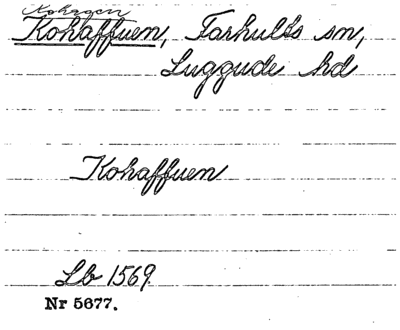 Kohagen
Kohaffuen, Farhults sn,
Luggude hd
Kohaffuen
Lb 1569.
Nr 5677.